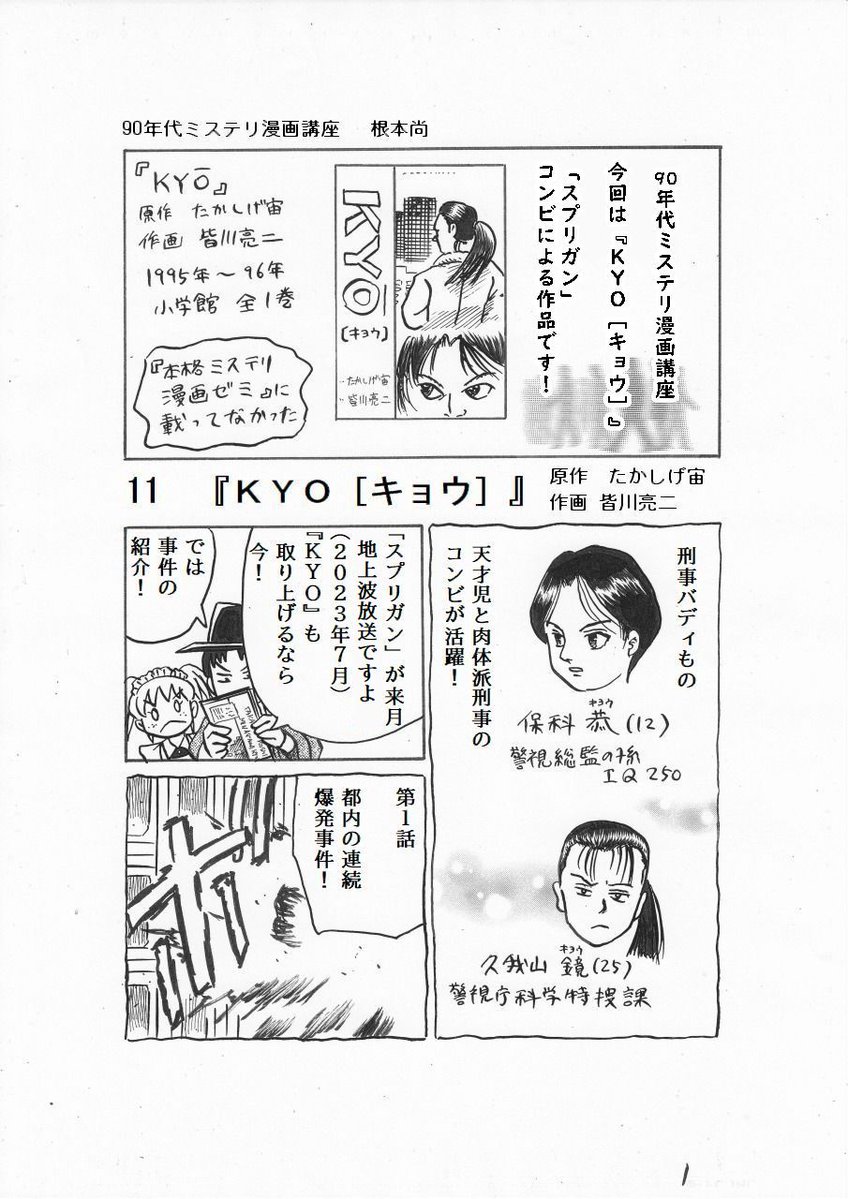 90年代ミステリ漫画講座 根本尚
90年代ミステリ漫画講座
今回は『KYO［キョウ］』
「スプリガン」
コンビによる作品です！
『KYŌ』
原作 たかしげ宙
作画 皆川亮二
1995年～96年
小学館 全1巻
『本格ミステリ
漫画ゼミ』に
載ってなかった
KYŌ
［キョウ］
たかしげ宙
皆川亮二
11 『KYO［キョウ］』
原作 たかしげ宙
作画 皆川亮二
刑事バディもの
天才児と肉体派刑事の
コンビが活躍！
キョウ
保科 恭(12)
警視総監の孫
IQ 250
キョウ
久我山 鏡(25)
警視庁科学特捜課
「スプリガン」が来月
地上波放送ですよ
（2023年7月）
『KYO』も
取り上げるなら
今！
では
事件の
紹介！
第1話
都内の連続
爆発事件！
1